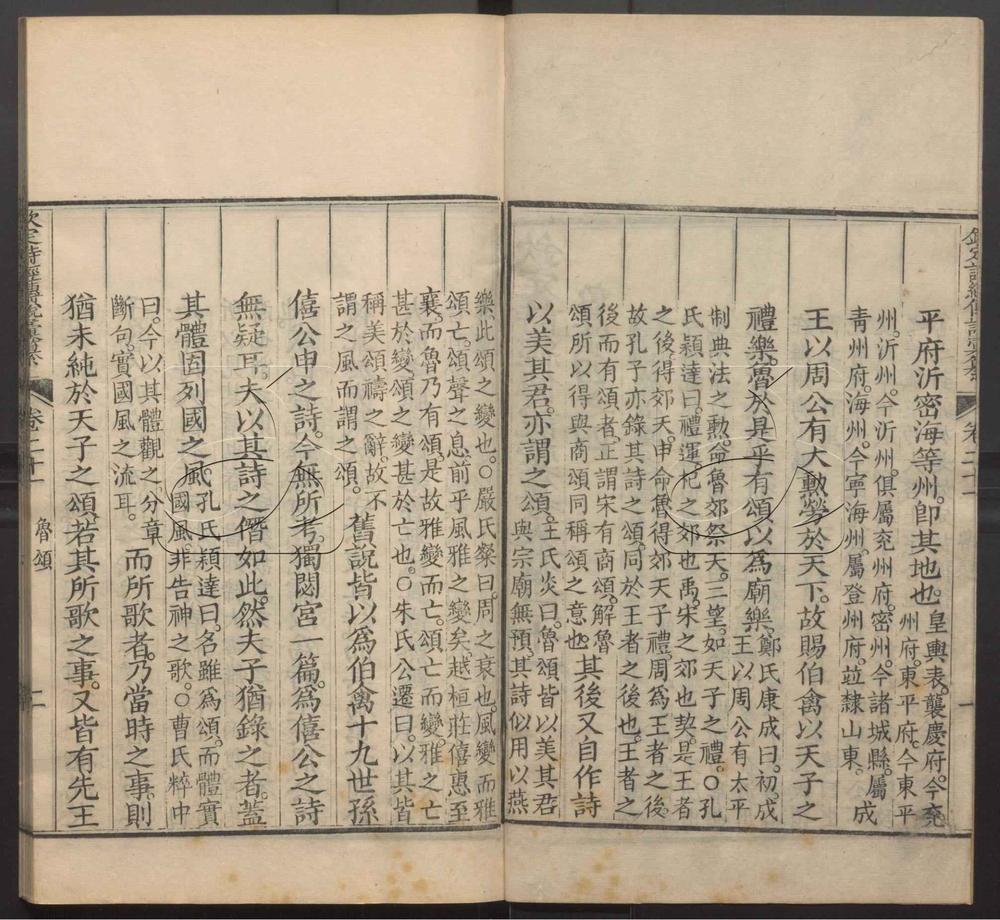 平府沂密海等州。即其地也。皇輿表。襲慶府。今兗
州府。東平府。今東平
州。沂州。今沂州。俱屬兗州府。密州。今諸城縣。屬
青州府。海州。今寧海州。屬登州府。竝隸山東。成
王以周公有大勲勞於天下。故賜伯禽以天子之
禮樂。魯於是乎有頌。以爲廟樂。鄭氏康成曰。初成
王以周公有太平
制典法之勲。命魯郊祭天。三望。如天子之禮。〇孔
氏穎達曰。禮運。杞之郊也禹。宋之郊也契。是王者
之後。得郊天。申命魯得郊天子禮。周爲王者之後。
故孔子亦錄其詩之頌。同於王者之後也。王者之
後而有頌者。正謂宋有商頌。解魯
頌所以得與商頌同稱頌之意也。其後又自作詩
以美其君。亦謂之頌。王氏炎曰。魯頌皆以美其君
與宗廟無預。其詩似用以燕
樂。此頌之變也。〇嚴氏粲曰。周之衰也。風變而雅
頌亡。頌聲之息。前乎風雅之變矣。越桓莊僖惠至
襄。而魯乃有頌。是故雅變而亡。頌亡而變。雅之亡
甚於變。頌之變甚於亡也。〇朱氏公遷曰。以其皆
稱美頌禱之辭。故不
謂之風而謂之頌。舊說皆以爲伯禽十九世孫
僖公申之詩。今無所考。獨閟宮一篇。爲僖公之詩
無疑耳。夫以其詩之僭如此。然夫子猶錄之者。蓋
其體固列國之風。孔氏穎達曰。名雖爲頌。而體實
國風。非告神之歌。〇曹氏粹中
曰。今以其體觀之。分章
斷句。實國風之流耳。而所歌者。乃當時之事。則
猶未純於天子之頌。若其所歌之事。又皆有先王
欽定詩經傳說彙纂 卷二十一 魯頌 二